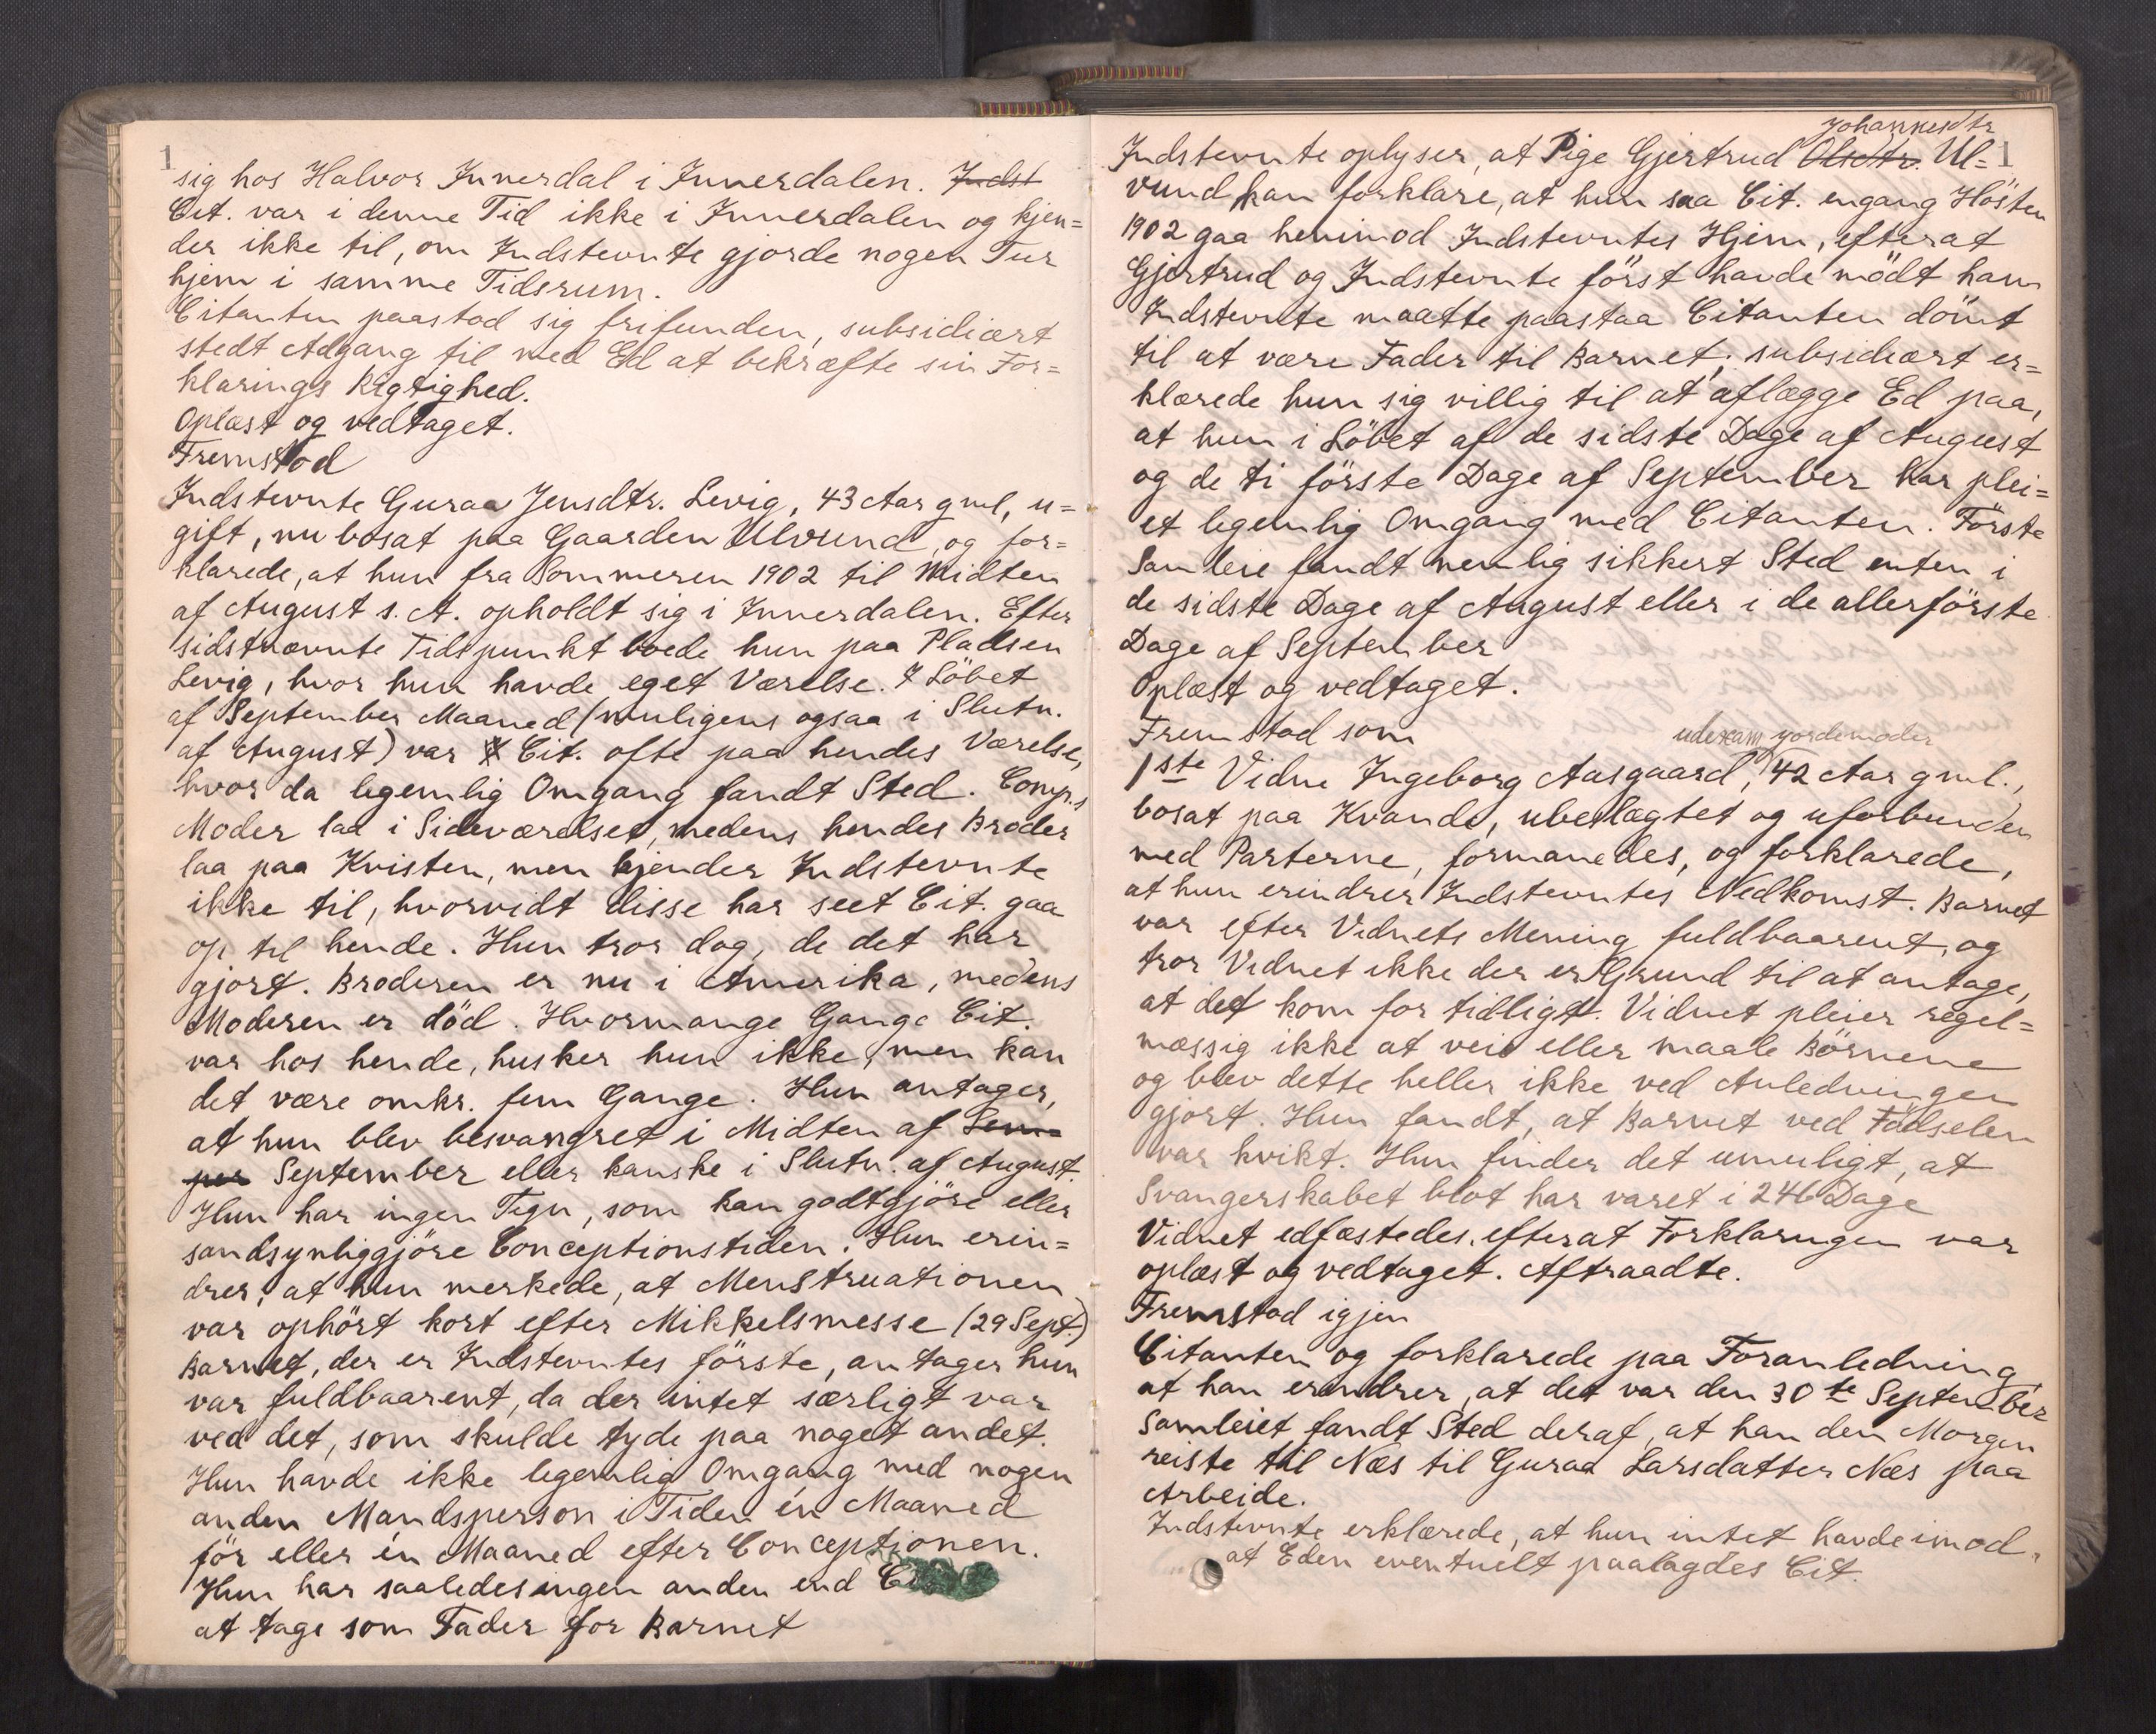 1
sig hos Halvor Innerdal i Innerdalen. Indst
Cit. var i denne Tid ikke i Innerdalen og kjen=
der ikke til, om Indstevnte gjorde nogen Tur
hjem i samme Tidsrum.
Citanten paastod sig frifunden, subsidiært
stedt Adgang til med Ed at bekræfte sin For=
klarings Rigtighed.
Oplæst og vedtaget.
Fremstod
Indstevnte Guraa Jensdtr. Levig, 43 Aar gml, u=
gift, nu bosat paa Gaarden Ulvund, og for=
klarede, at hun fra Sommeren 1902 til Midten
af August s. A. opholdt sig i Innerdalen. Efter
sidstnævnte Tidspunkt boede hun paa Pladsen
Levig, hvor hun havde eget Værelse. I Löbet
af September Maaned (muligens ogsaa i Slutn.
af August) var Cit. ofte paa hendes Værelse,
hvor da legemlig Omgang fandt Sted. Comp.s
Moder laa i Sideværelset, medens hendes Broder
laa paa Kvisten, men kjender Indstevnte
ikke til, hvorvidt disse har seet Cit. gaa
op til hende. Hun tror dog, de det har
gjort. Broderen er nu i Amerika, medens
Moderen er död. Hvormange Gange Cit.
var hos hende, husker hun ikke, men kan
det være omkr. fem Gange. Hun antager,
at hun blev besvangret i Midten af Sem=
per September eller kanske i Slutn. af August.
Hun har ingen Tegn, som kan godtgjöre eller
sandsynliggjöre Conceptionstiden. Hun erin=
drer, at hun merkede, at Menstruationen
var ophört kort efter Mikkelsmesse (29 Sept.)
Barnet, der er Indstevntes förste, antager hun
var fuldbaarent, da der intet særligt var
ved det, som skulde tyde paa noget andet.
Hun havde ikke legemlig Omgang med nogen
anden Mandsperson i Tiden én Maaned
för eller én Maaned efter Conceptionen.
Hun har saaledes ingen anden end
at tage som Fader for Barnet
Johannesdtr
Indstevnte oplyser, at Pige Gjertrud Olsdtr. Ul= 1
vund kan forklare, at hun saa Cit. engang Hösten
1902 gaa henimod Indstevntes Hjem, efterat
Gjertrud og Indstevnte först havde mödt ham
Indstevnte maatte paastaa Citanten dömt
til at være Fader til Barnet; subsidiært er=
klærede hun sig villig til at aflægge Ed paa,
at hun i Löbet af de sidste Dage af August
og de ti förste Dage af September har plei=
et legemlig Omgang med Citanten. Förste
Samleie fandt nemlig sikkert Sted enten i
de sidste Dage af August eller i de allerförste
Dage af September
Oplæst og vedtaget.
Fremstod som
udexam jordemoder
1ste Vidne Ingeborg Aasgaard, 42 Aar gml.,
bosat paa Kvande, uberlægtet og uforbunden
med Parterne, formanedes, og forklarede,
at hun erindrer Indstevntes Nedkomst. Barnet
var efter Vidnets Mening fuldbaarent, og
tror Vidnet ikke der er Grund til at antage,
at det kom for tidligt. Vidnet pleier regel=
mæssig ikke at veie eller maale Börnene
og blev dette heller ikke ved Anledningen
gjort. Hun fandt, at Barnet ved Födselen
var kvikt. Hun finder det umuligt, at
Svangerskabet blot har varet i 246 Dage
Vidnet edfæstedes, efterat Forklaringen var
oplæst og vedtaget. Aftraadte.
Fremstod igjen
Citanten og forklarede paa Foranledning,
at han erindrer, at det var den 30te September
Samleiet fandt Sted deraf, at han den Morgen
reiste til Næs til Guraa Larsdatter Næs paa
Arbeide.
Indstevnte erklærede, at hun intet havde imod,
at Eden eventuelt paalagdes Cit.